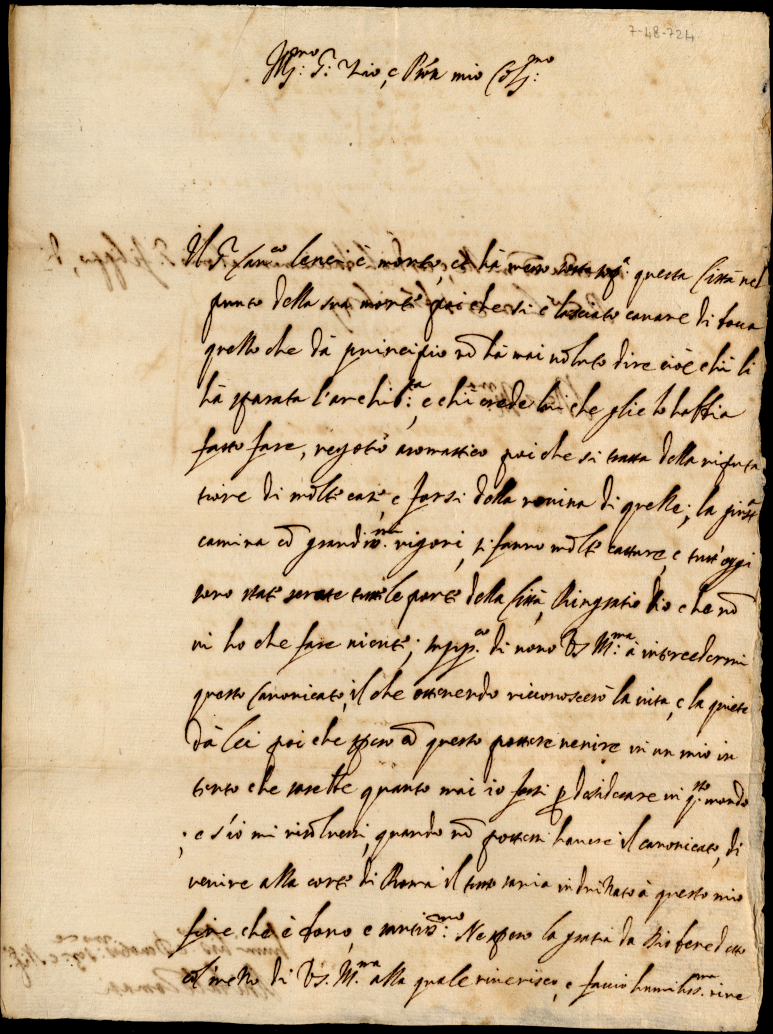 7-48-724
Ill.mo S.r Zio, e Pron mio Col.mo
Il S.r Fran.co Ceneri è morto, et hà messo sotto sop.a questa Città nel
punto della sua morte poi che si è lasciato cavare di bocca
quello che dà principio nõ hà mai voluto dire cioè chi li
hà sparata l'archib.ta, e chi crede lui che glie lo habbia
fatto fare, negotio aromattico poi che si tratta della riputa
tione di molte case, e forsi della rovina di quelle; la giust.a
camina cõ grandiss.mi rigori, si fanno molte catture, e tutt'oggi
sono state serate tutte le porte della Città, Ringratio Dio che nõ
vi ho che fare niente; supp.co di novo VS Ill.ma à intercedermi
questo Canonicato, il che ottenendo riconoscerò la vita, e la quiete
dà lei poi che spero cõ questo possere venire in un mio in
tento che sarebbe quanto mai io sapessi desiderare in q.sto mondo
; e s'io mi risolvessi, quando nõ potessi havere il canonicato, di
venire alla corte di Roma il tutto saria indrizato à questo mio
fine che è bono, e santiss.mo: Ne spero la gratia da Dio benedetto
col mezzo di VS. Ill.ma alla quale riverisco, e faccio humiliss.ma rive